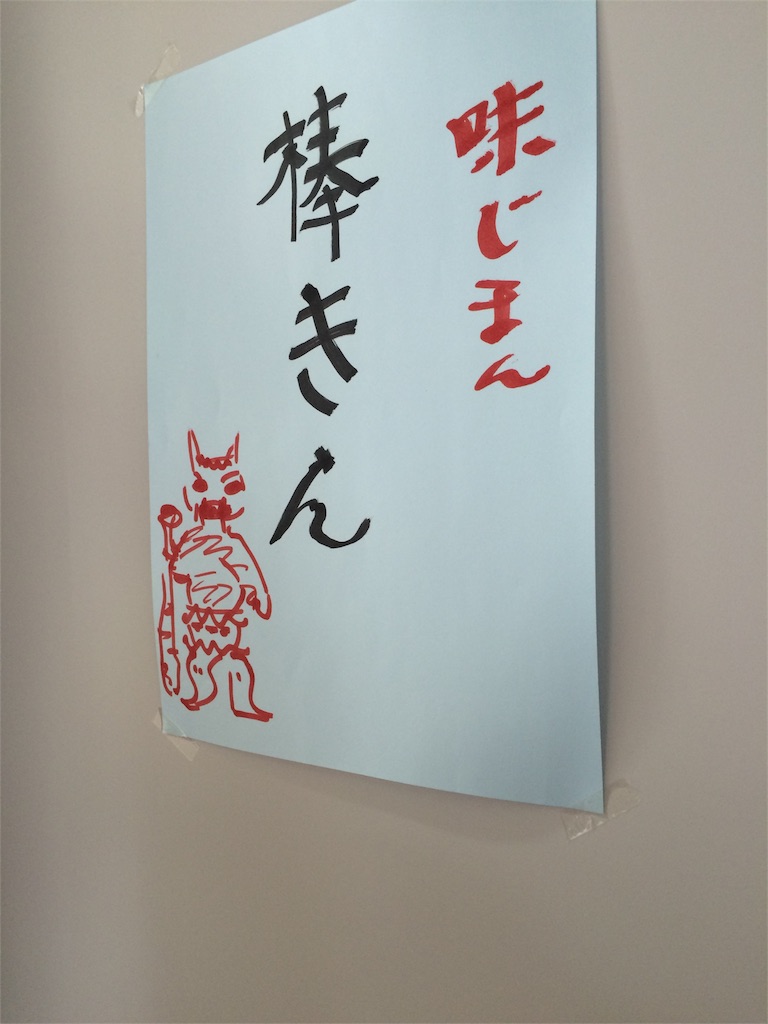 味じまん
棒きん